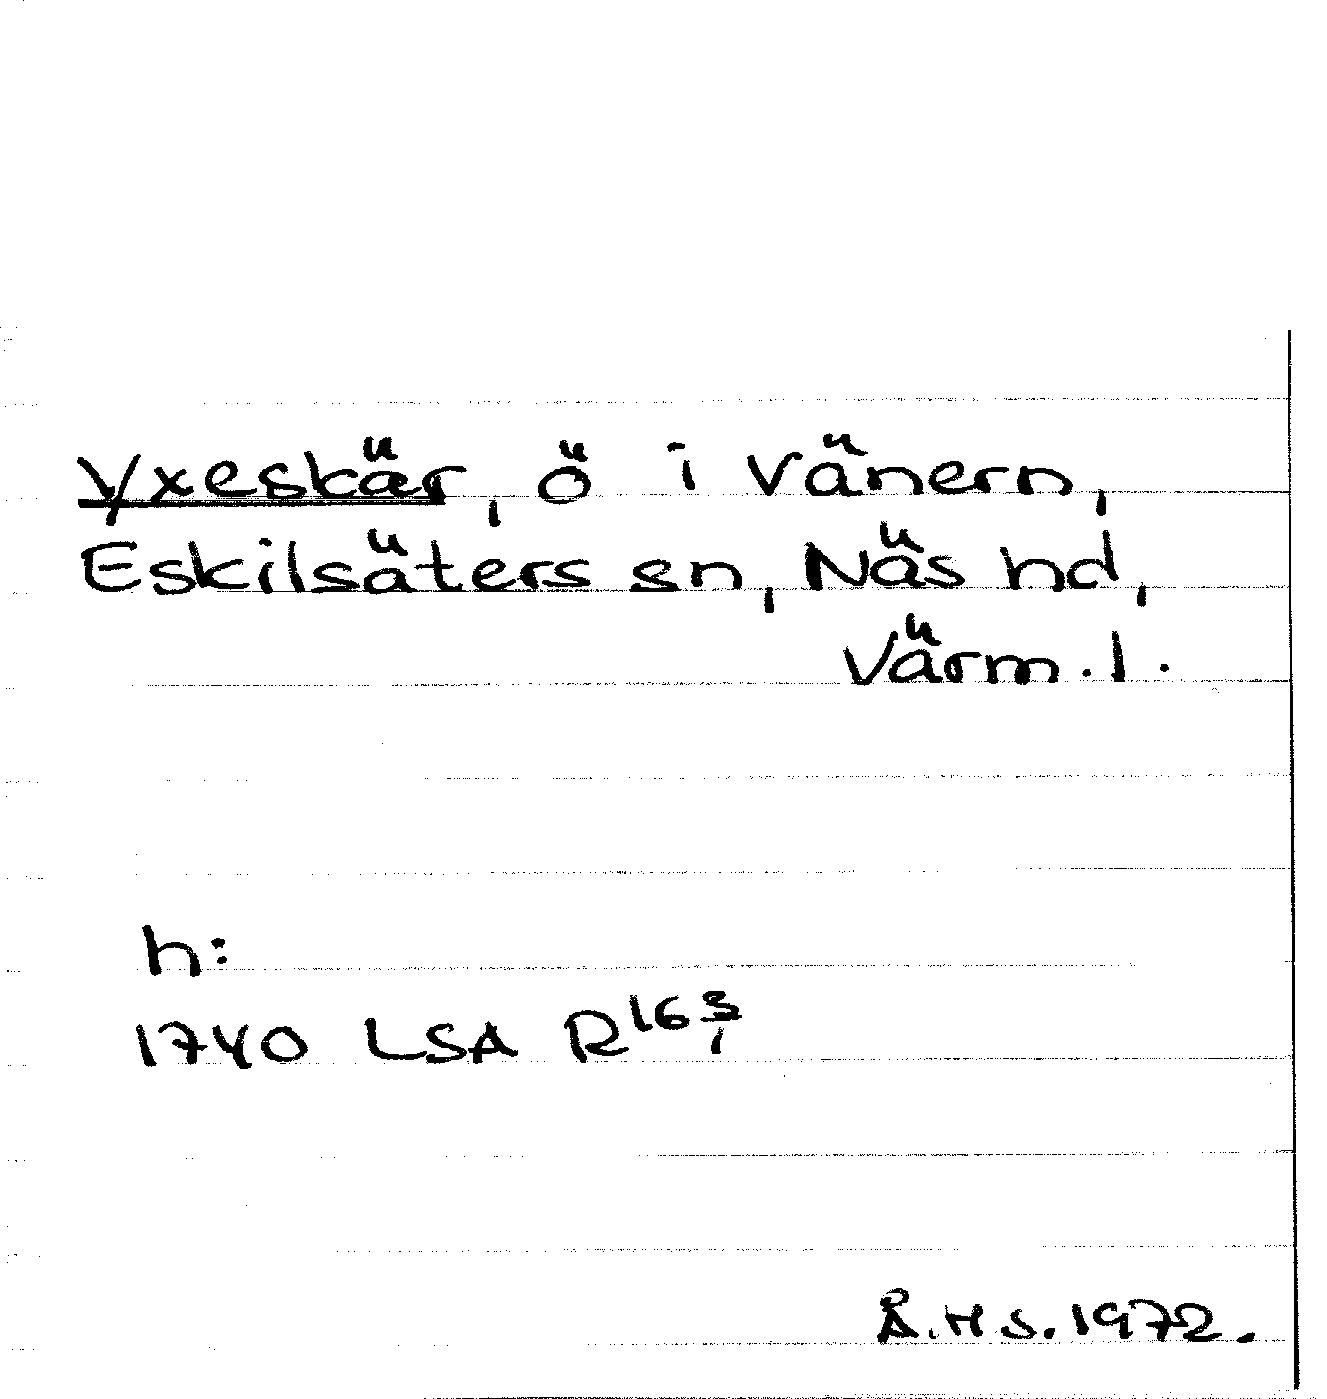 Yxeskär, ö i Vänern,
Eskilsäters sn, Näs hd,
Värm. l.
h:
1740 LSA R 16 3/1
Å.H S. 1972.